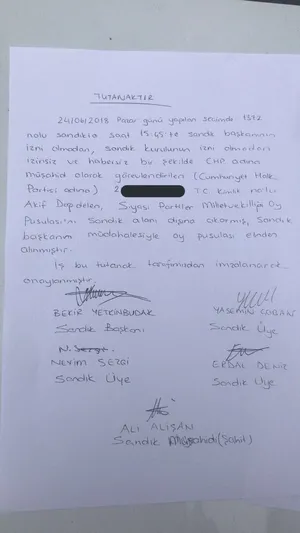 TUTANAKTIR
24/06/2018 Pazar günü yapılan seçimde 1372
nolu sandıkta saat 15:45'te sandık başkanının
izni olmadan, sandık kurulunun izni olmadan
izinsiz ve habersiz bir şekilde CHP adına
müşahid olarak görevlendirilen (Cumhuriyet Halk
Partisi adına) 2 T.C kimlik nolu
Akif Dep delen, Siyasi Partiler Milletvekilliği Oy
Pusulasını Sandık alanı dışına çıkarmış, Sandık
başkanın müdahalesiyle oy pusulası elinden
alınmıştır.
İş bu tutanak tarafımızdan imzalanarak
onaylanmıştır.
BEKİR YETKİNBUDAK
Sandık Başkanı
YASEMİN
Sandık Üye
N. Sezgi
NEVİM SEZGİ
Sandık Üye
ERDAL DENİZ
Sandık Üye
ALİ ALIŞAN
Sandık Müşahidi (Şahit)